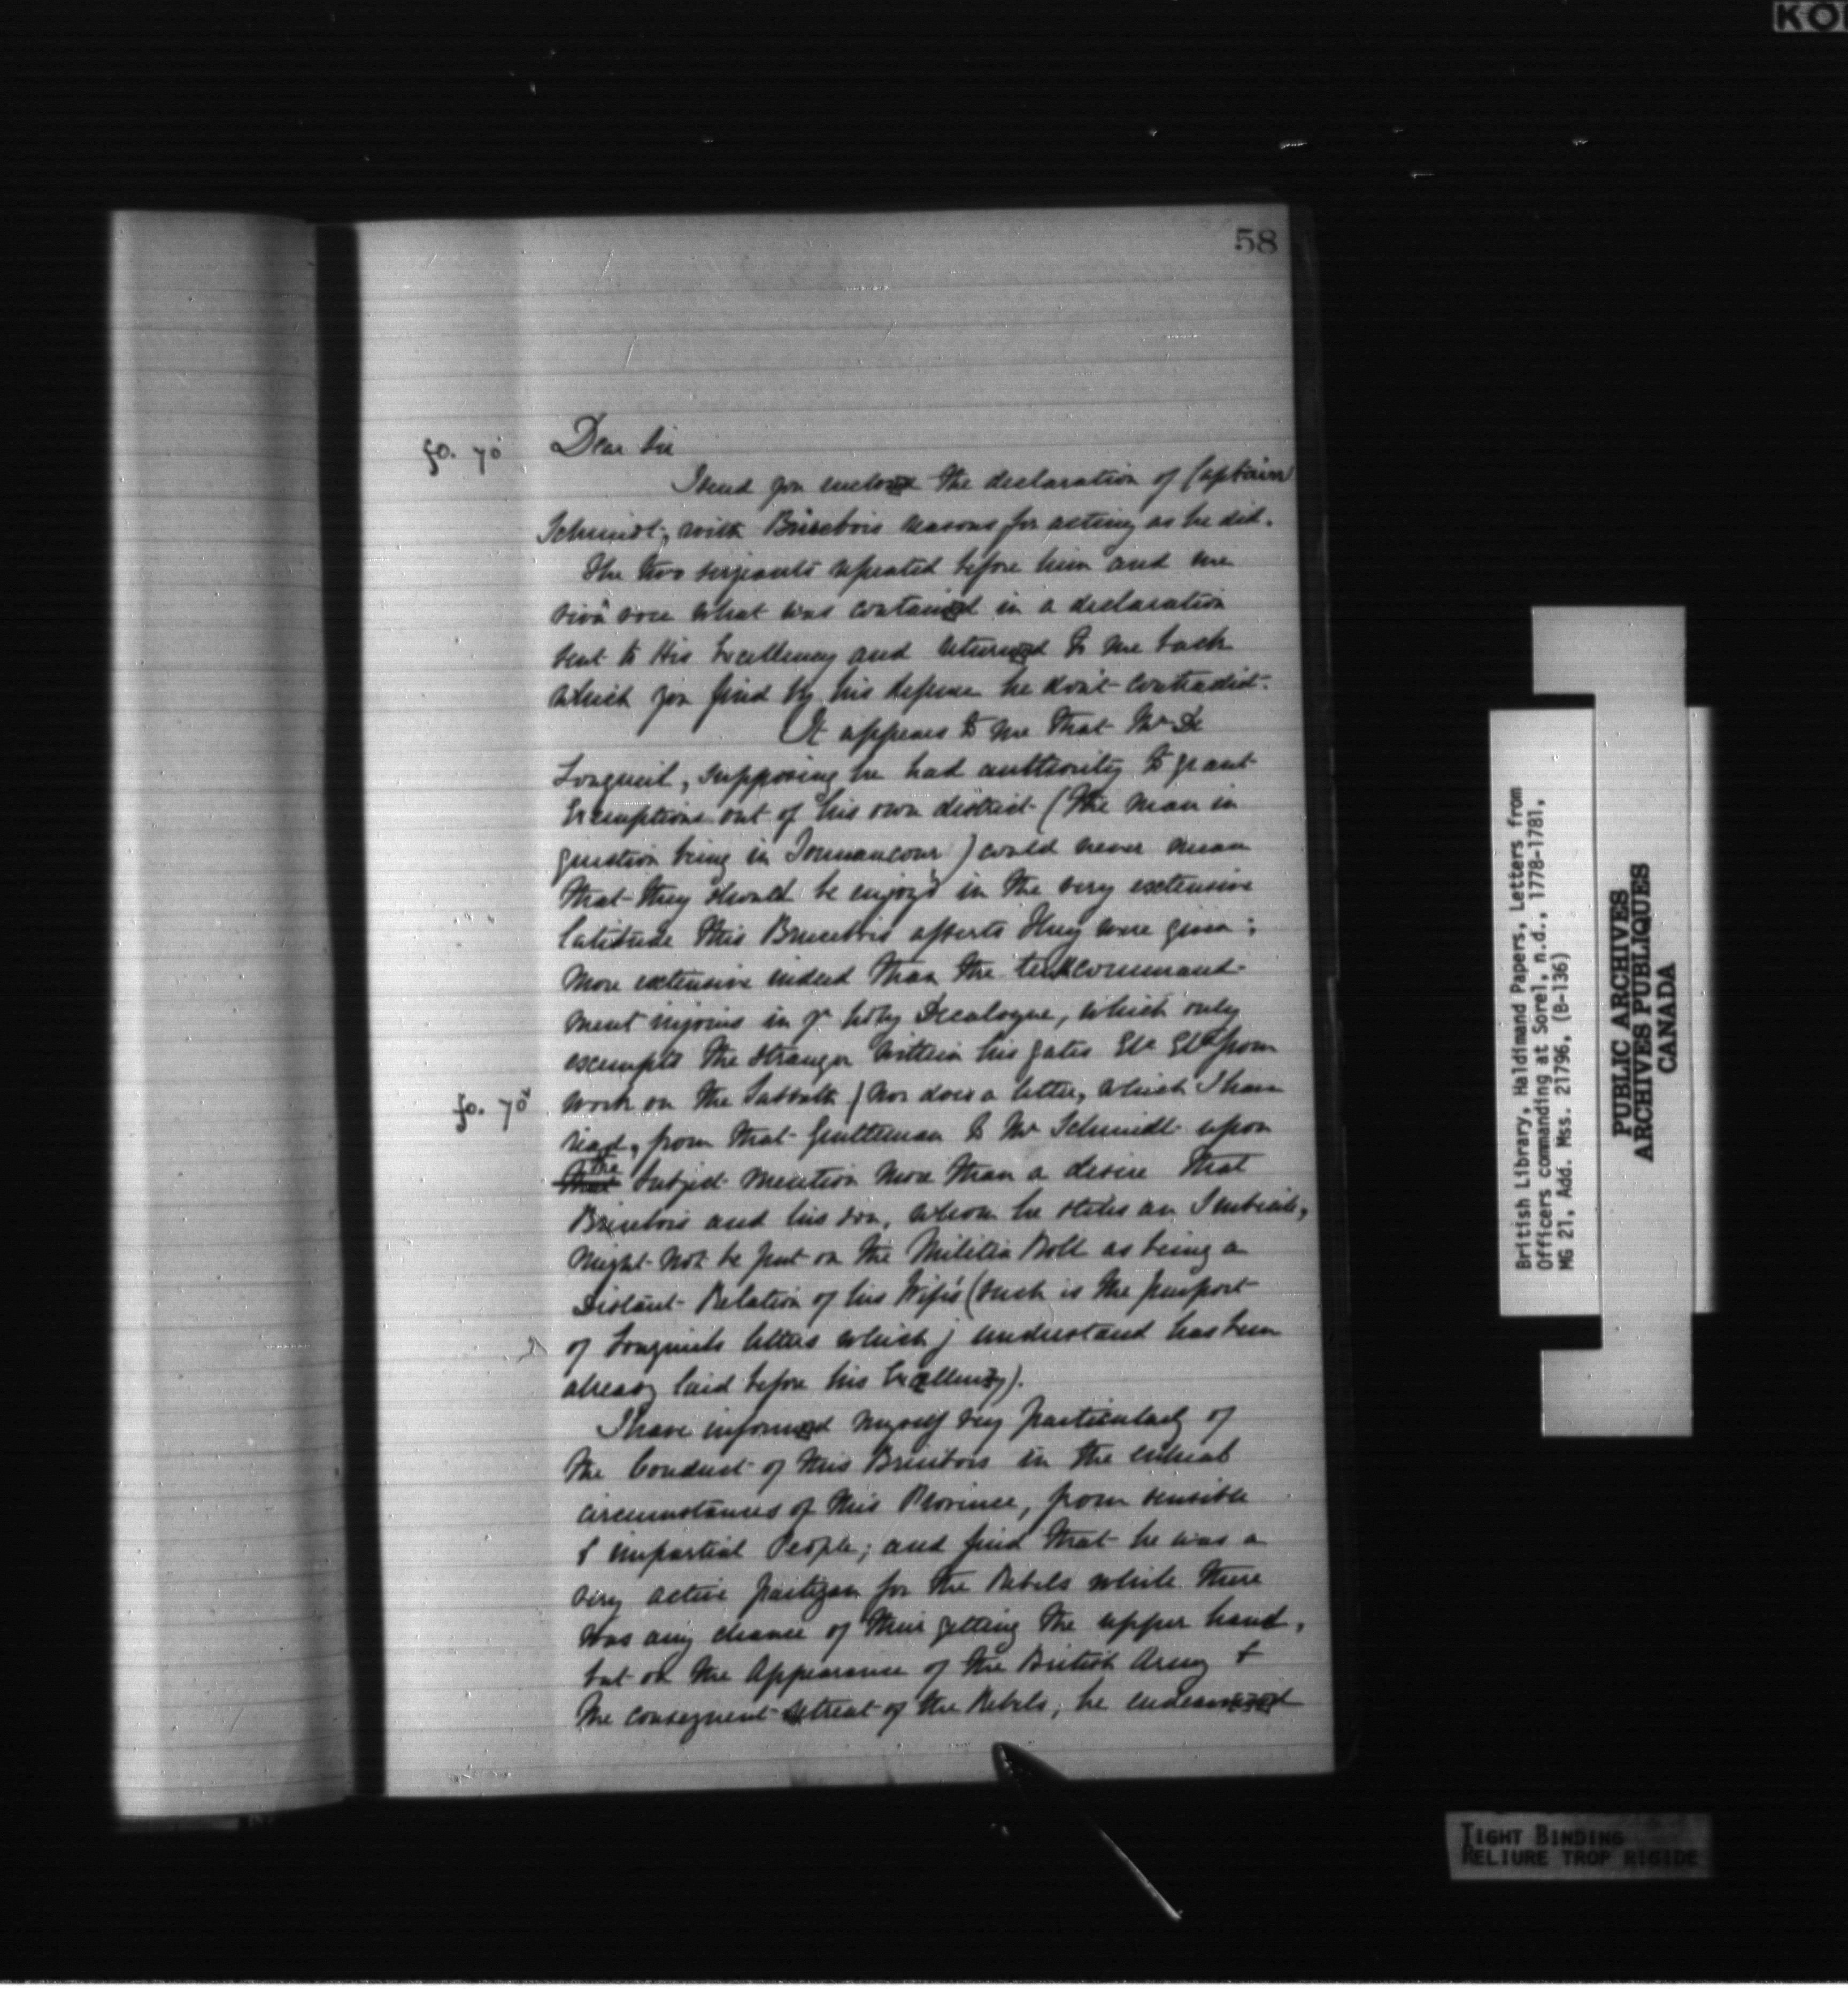 58
fo. 70
Dear Sir
I send you enclosed the declaration of Captain
Schmidt, with Brisebois reasons for acting as he did.
The two serjeants repeated before him and me
vivâ voce what was contained in a declaration
sent to His Excellency and returned to me back
which you find by his defense he don't contradict.
It appears to me that Mr De
Longueil, supposing he had authority to grant
Exemptions out of his own district (the man in
question being in Tonnancour) could never mean
that they should be enjoy'd in the very extensive
latitude this Brisebois asserts they were given;
more extensive indeed than the command-
ment injoins in ye holy Decalogue, which only
exempts the stranger within his gates &c &c from
fo. 70
work on the Sabbath / Nor does a letter, which I have
read, from that Gentleman to Mr Schmidt upon
that the Subject mention more than a desire that
Brisebois and his son, whom he states an Imbecile,
might not be put on the Militia Roll as being a
Distant Relation of his Wife's (such is the purport
of Longueils letters which j understand has been
already laid before his Excellency).
I have informed myself very particularly of
the Conduct of this Brisebois in the critical
circumstances of this Province, from sensible
& impartial People; and find that he was a
very active partizan for the Rebels while there
was any chance of their getting the upper hand,
but on the Appearance of the British Army &
the consequent retreat of the Rebels, he endeavoured
British Library, Haldimand Papers, Letters from
Officers commanding at Sorel, n.d., 1778-1781,
MG 21, Add. Mss. 21796, (B-136)
PUBLIC ARCHIVES
ARCHIVES PUBLIQUES
CANADA
TIGHT BINDING
RELIURE TROP RIGIDE